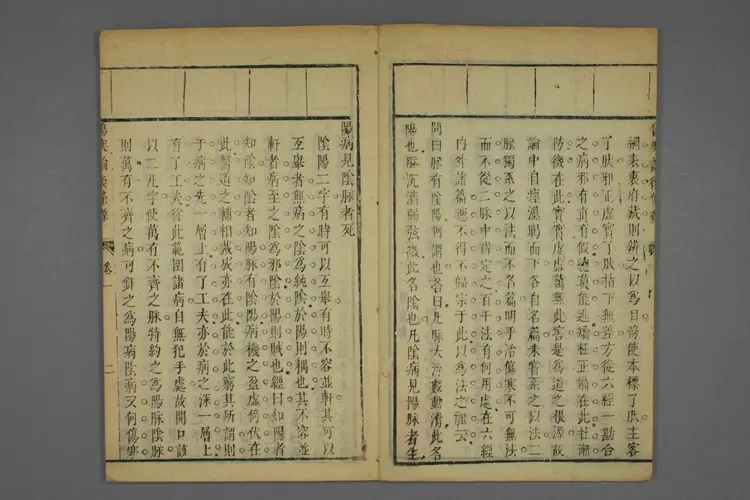 綱表裏府藏則辨之以爲日務使本標了肰主客
了肰邪正虛實了肰指下無差方從六經一勘合
之病邪有真有假總莫能逃矯枉正錯在此杜漸
防微在此實實虛虛萬無此害是爲道之根源故
論中自痙濕暍而下各自名篇未嘗系之以法二
脉獨系之以法而不名篇明乎治傷寒不可無法
而不從二脉中辨定之百千法有何用處在六經
内外諸篇總不得不歸宗于此以爲法之祖云
問曰脉有陰陽何謂也答曰凡脉大浮數動滑此名
陽也脉沉濇弱弦微此名陰也凡陰病見陽脉者生
陽病見陰脉者死
陰陽二字有時可以互舉有時不容並軒其可以
互舉者無病之陰爲純陰於陽則耦也其不容並
軒者病至之陰爲邪陰於陽則賊也經曰知陽者
知陰知陰者知陽脉有陰陽病機之盈虛倚伏在
此醫道之輔相裁成亦在此能於此窮其所謂則
于病之先一層上有了工夫亦於病之深一層上
有了工夫從此範圍諸病自無犯手處故開口該
以二凡字使萬有不齊之脉特約之爲陽脉陰脉
則萬有不齊之病可斜之爲陽病陰病又何傷寒
卷一
二